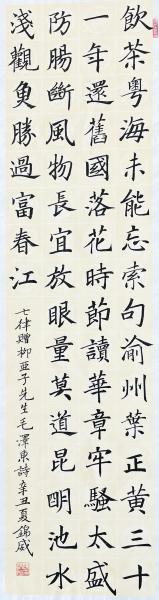 飲茶粵海未能忘索句渝州葉正黃三十
一年還舊國落花時節讀華章牢騷太盛
防腸斷風物長宜放眼量莫道昆明池水
淺觀魚勝過富春江
七律贈柳亞子先生毛澤東詩辛丑夏錦威